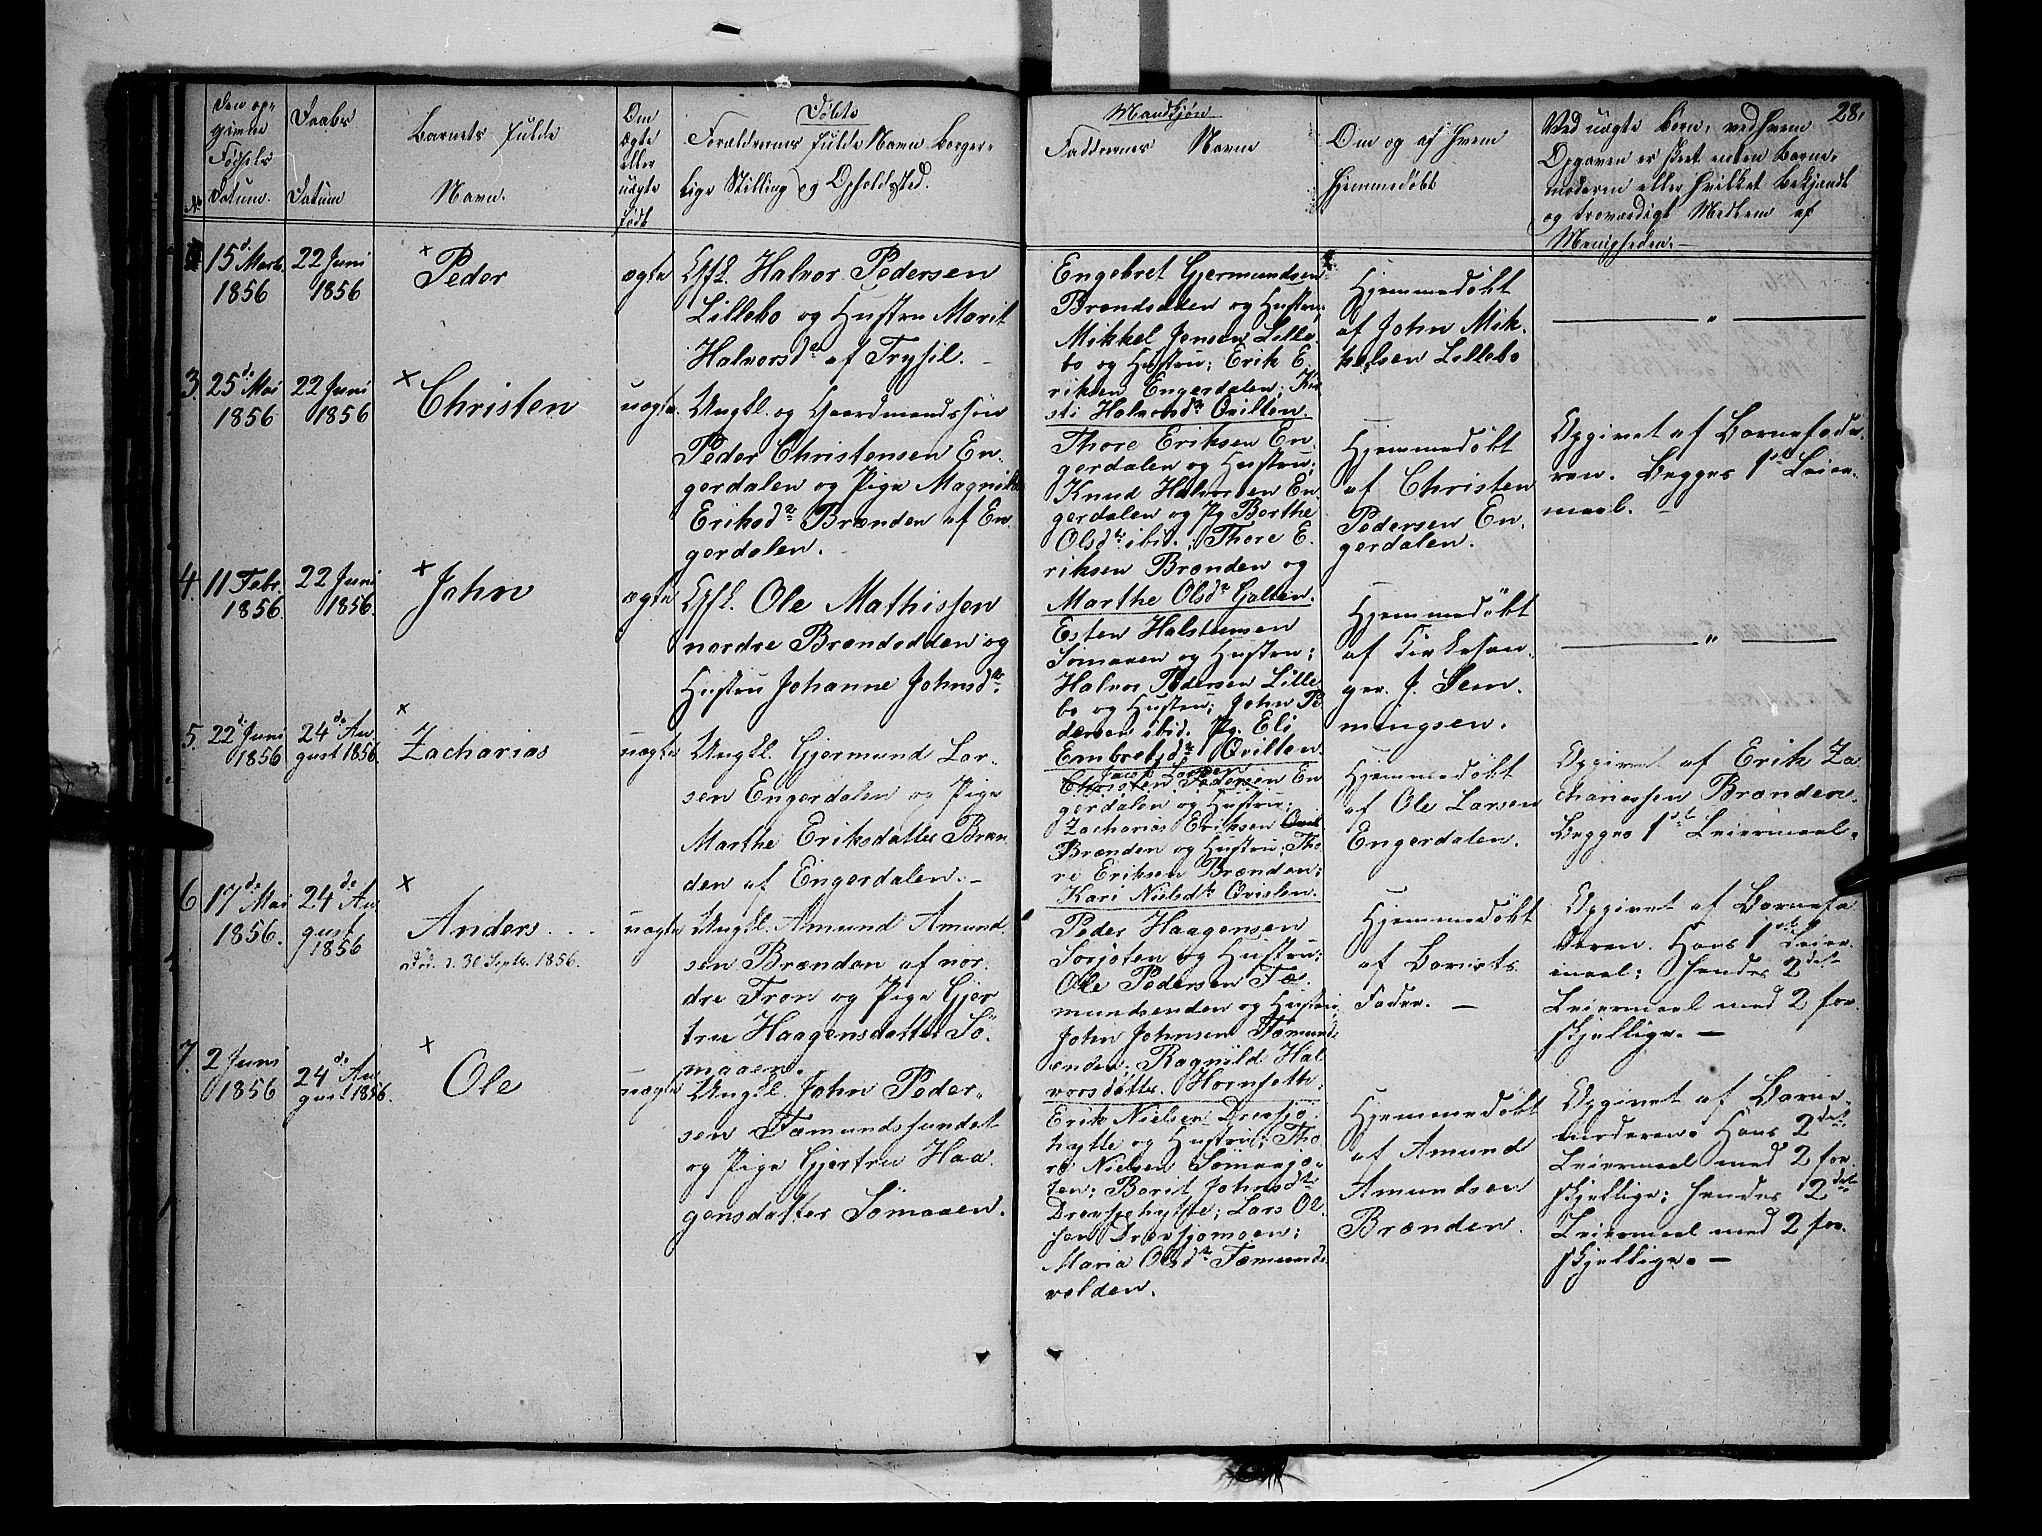 28.
Døbte
Mandkjøn
No
Den op-
givne
Fødsels
Datum.
Daabs
Datum
Barnets fulde
Navn.
Om
ægte
eller
uægte
født
Forældrenes fulde Navn, borger-
lige Stilling og Opholdssted.
Faddernes Navne
Om og af hvem
hjemmedøbt
Ved uægte Børn, ved hvem
Opgaven er skeet enten Barne-
moderen eller hvilket bekjendt
og troværdigt Medlem af
Menigheden.
15 d. Marts
1856
22 Juni
1856
Peder
ægte
Gift. Halvor Pedersen
Lillebo og Hustru Marit
Halvorsdr af Trysil.
Engebret Gjermundsen
Brændsdalen og Hustru;
Mikkel Jensen Lille-
bo og Hustru; Erik E-
riksen Engerdalen; Kir-
sti Halvorsdr Qvilten.
Hjemmedøbt
af John Mik-
kelsen Lillebo
"
3.
25de Mai
1856
22 Juni
1856
Christen
uægte.
Ungkl. og Gaardmandssøn
Peder Christensen En-
gerdalen og Pige Magnild
Eriksdr Brænden af En-
gerdalen.
Thore Eriksen En-
gerdalen og Hustru;
Knud Halvorsen En-
gerdalen og Pg Berthe
Olsdr ibid.; Thore E-
riksen Brænden og
Marthe Olsdr Galten.
Hjemmedøbt
af Christen
Pedersen En-
gerdalen.
Opgivet af Barnefade-
ren. Begges 1ste Leier-
maal.
4.
11 Febr.
1856.
22 Juni
1856.
John
ægte
Gift. Ole Mathissen
nordre Brændodden og
Hustru Johanne Johnsdr.
Esten Halstensen
Sømaaen og Hustru;
Halvor Pedersen Lille-
bo og Hustru; John Pe-
dersen ibid. Pg. Eli
Embretsdr Qvilten.
Hjemmedøbt
af Kirkesan-
ger J. Sem-
mingsen.
"
5.
22de Juni
1856
24de Au-
gust 1856.
Zacharias
uægte
Ungkl. Gjermund Lar-
sen Engerdalen og Pige
Marthe Eriksdatter Bræn-
den af Engerdalen.
Jacob Larsen
Christen Pedersen En-
gerdalen og Hustru;
Zacharias Eriksen
Brænden og Hustru; Tho-
re Eriksen Brænden;
Kari Nielsdtr Qvisten.
Hjemmedøbt
af Ole Larsen
Engerdalen.
Opgivet af Erik Za-
chariassen Brænden.
Begges 1ste Leiermaal.
6
17de Mai
1856.
24de Au-
gust
1856
Anders
Død d. 30 Septr. 1856.
uægte
Ungkl. Amund Amund-
sen Brænden af nor-
dre Fron og Pige Gjer-
tru Haagensdatter Sø-
maaen.
Peder Haagensen
Sorjoten og Hustru;
Ole Pedersen Fæ-
mundsenden og Hustru;
John Johnsen Fæmunds-
enden; Ragnild Hal-
vorsdatter Hornseth.
Hjemmedøbt
af Barnets
Fader.
Opgivet af Barnefa-
deren. Hans 1ste Leier-
maal; hendes 2det
Leiermaal med 2 for-
skjellige.
7.
2 Juni
1856
24de Au-
gust 1856.
Ole
uægte
Ungkl. John Peder-
sen Fæmundssundet
og Pige Gjertru Haa-
gensdatter Sømaaen.
Erik Nielsen Drevsjø-
hytte og Hustru; Tho-
re Nielsen Sømaajo-
ten; Berit Johnsdtr
Drevsjøhytte; Lars Ol-
sen Drevsjømoen;
Maria Olsdr Fæmunds-
volden.
Hjemmedøbt
af Amund
Amundsen
Brænden.
Opgivet af Barne-
moderen. Hans 2det
Leiermaal med 2 for-
skjellige; hendes 2det
Leiermaal med 2 for-
skjellige.